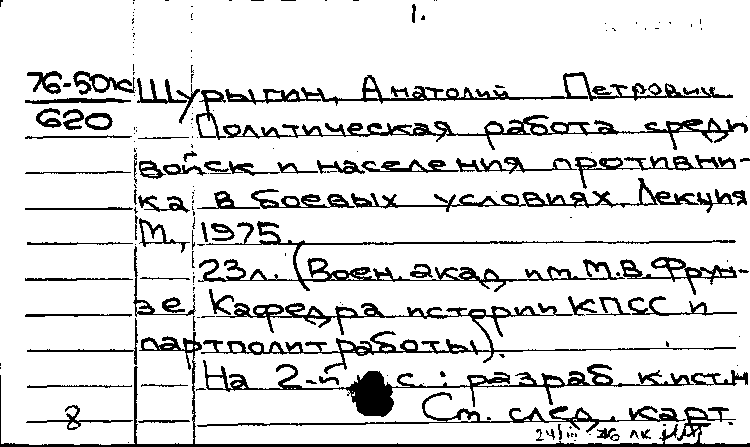 1.
76-50к Шурыгин, Анатолий Петрович
620 Политическая работа среди
войск и населения противни-
ка в боевых условиях. Лекция
М., 1975.
23л. (Воен. акад. им. М.В. Фрун-
зе. Кафедра истории КПСС и
партполитработы).
На 2-й с.: разраб. к.ист.н
8 См. след. карт.
76 лк